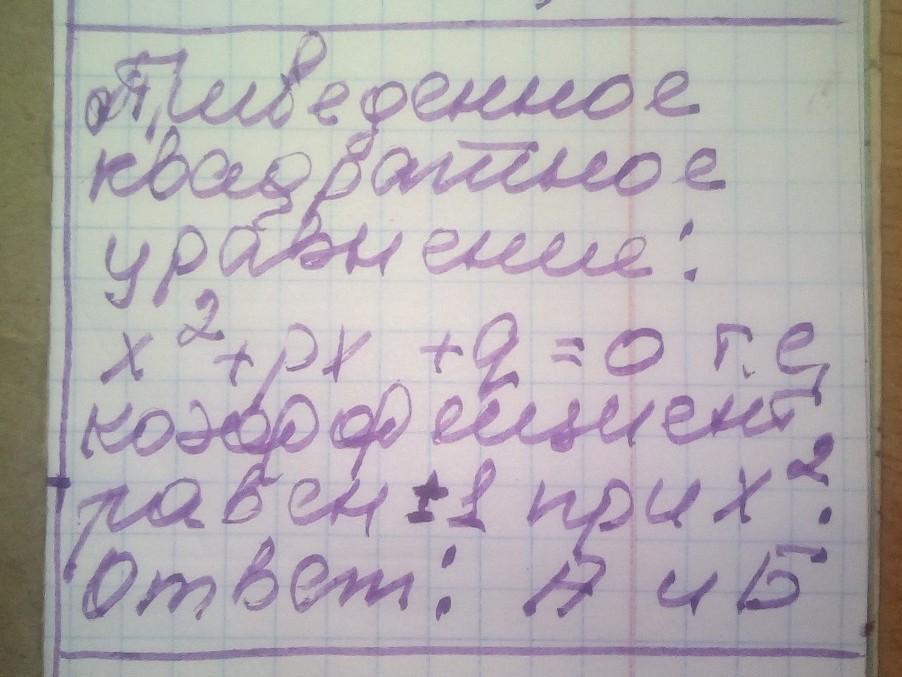 Приведенное
квадратное
уравнение:
x² + px + q = 0 т.е
коэффициент
равен ±1 при x².
Ответ: А и Б